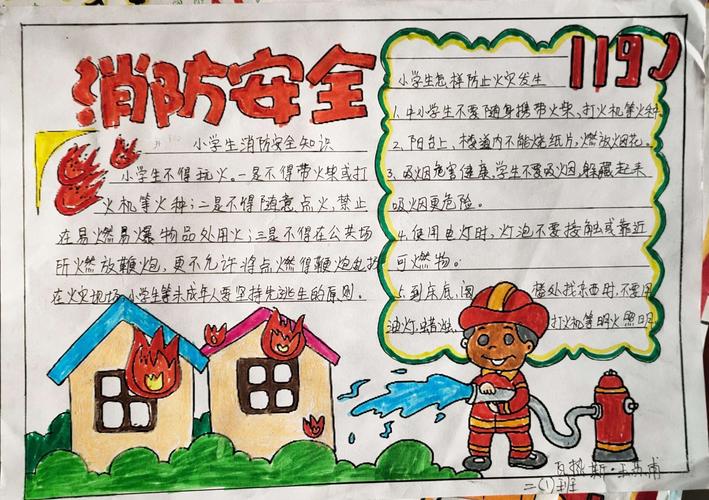 消防安全
小学生消防安全知识
小学生不得玩火。一是不得带火柴或打
火机等火种；二是不得随意点火，禁止
在易燃易爆物品处用火；三是不得在公共场
所燃放鞭炮，更不允许将点燃得鞭炮乱
在火灾现场，小学生等未成年人要坚持先逃生的原则。
119
小学生怎样防止火灾发生
1.中小学生不要随身携带火柴、打火机等火种
2.阳台上、楼道内不能烧纸片，燃放烟花。
3.吸烟危害健康，学生不要吸烟，躲藏起来
吸烟更危险。
4.使用电灯时，灯泡不要接触或靠近
可燃物。
5.到床底、阁 处找东西时，不要用
油灯、蜡烛、 打火机等明火照明
二(1)班